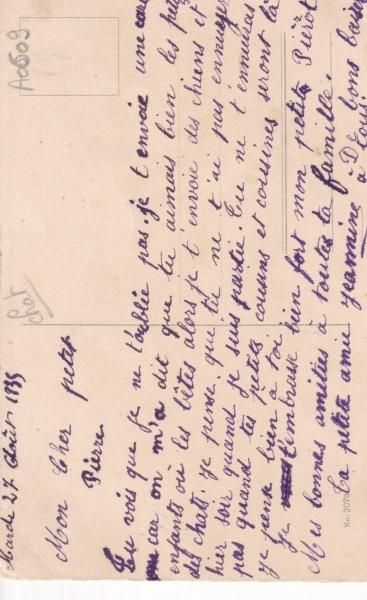 Mardi 27 Août 1935
Mon Cher petit
Pierre
Tu vois que je ne t'oublie pas. je t envoie une
car on m'a dit que tu aimais bien les
enfants où les bêtes alors je t envoie des chiens et
des chat. je pense que tu ne t'ai pas ennuyer
hier soir quand je suis partie. Tu ne t ennuieras
pas quand tes petits cousins et cousines seront là
je pense bien à toi
Je t'embrasse bien fort mon petit Pierrot
Mes bonnes amitiés à toutes ta famille.
Ta petite amie
Jeannine à De bons baisers
tous
A0509
Chat
chat
No. 2078